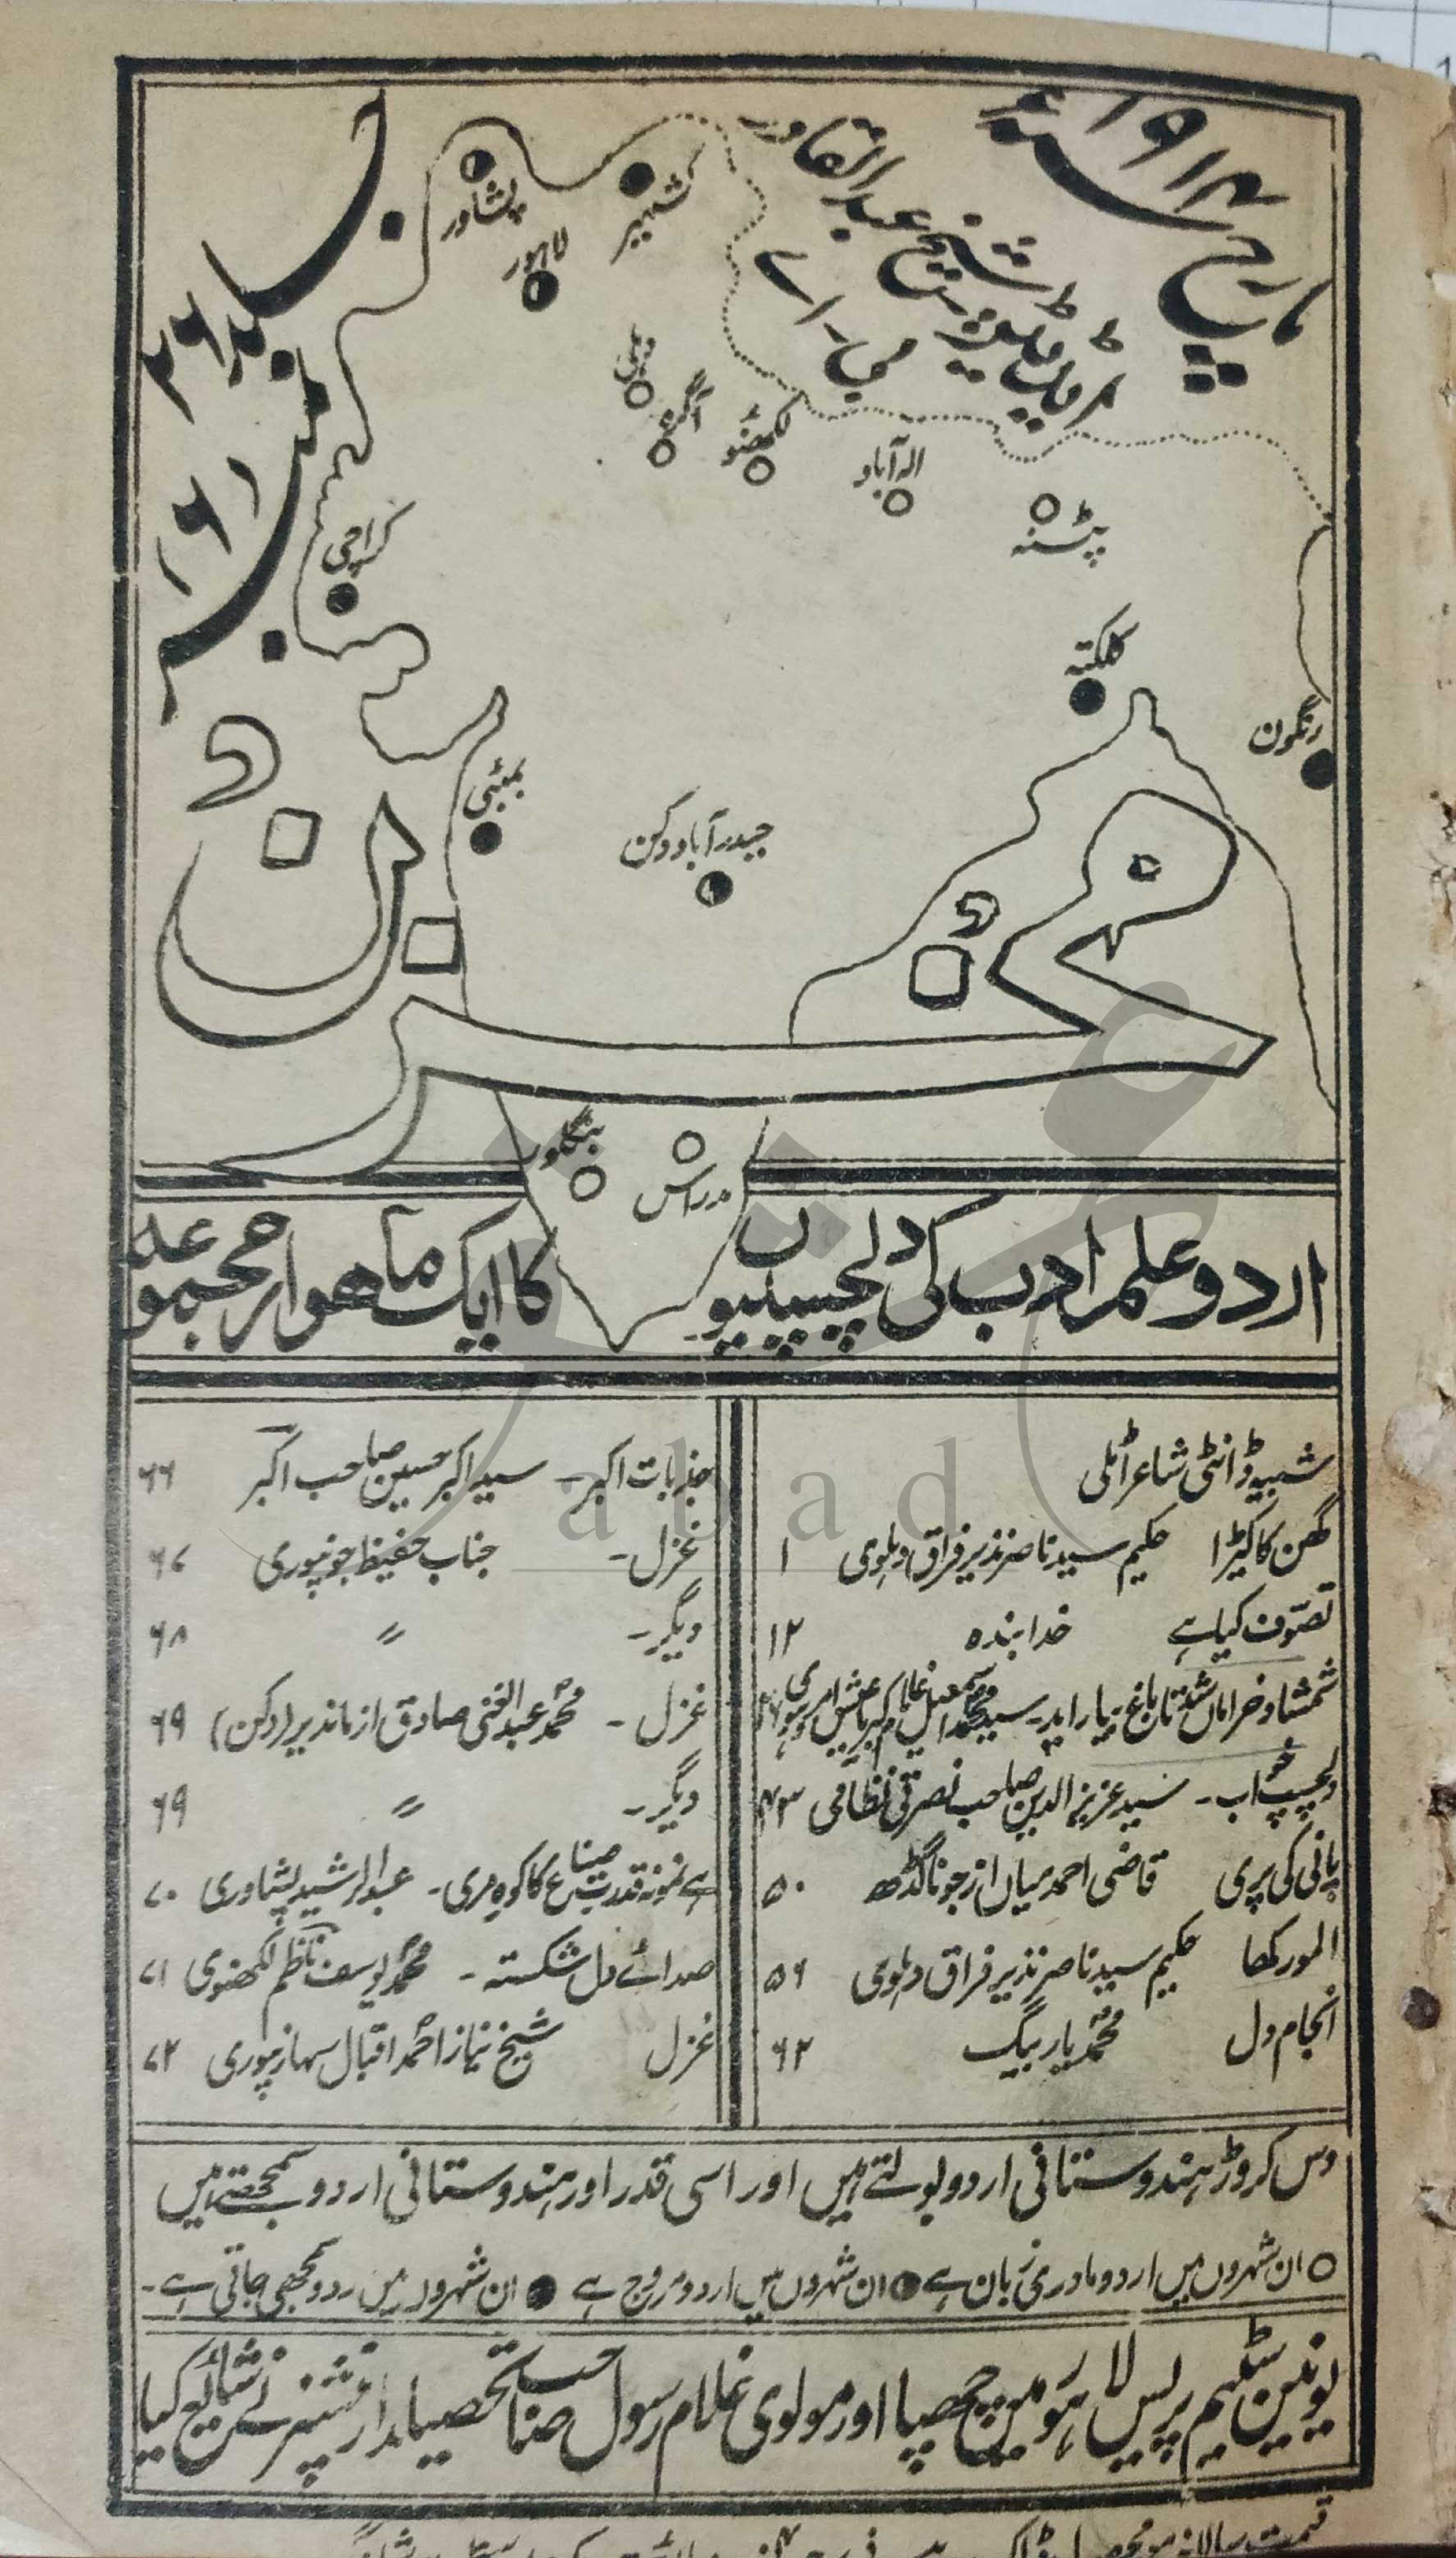 مارچ سنہ ۱۹۱۴ء
ایڈیٹر شیخ عبدالقادر
بی۔ اے
جلد ۲۶
نمبر ۶
پشاور
لاہور
کشمیر
دہلی
آگرہ
لکھنؤ
الہ آباد
پٹنہ
کراچی
کلکتہ
رنگون
بمبئی
حیدرآباد دکن
مخزن
بنگلور
مدراس
اردو علم ادب کی دلچسپیوں کا ایک ماھوار مجموعہ
شبیہ ڈانٹی شاعر اٹلی
گھن کا کیڑا حکیم سید ناصر نذیر فراق دہلوی ۱
تصوّف کیا ہے خدا بندہ ۱۲
شمشاد خراماں شد تا باغ بیاراید۔ سید محمد اسمعیل
دلچسپ خواب۔ سید عزیز الدین صاحب نصرتی نظامی ۴۳
پانی کی پری قاضی احمد میاں از جوناگڈھ ۵۰
المورکھا حکیم سید ناصر نذیر فراق دہلوی ۵۶
انجام دل محمد یار بیگ ۶۲
جذبات اکبر۔ سید اکبر حسین صاحب اکبر ۶۶
غزل۔ جناب حفیظ جونپوری ۶۷
دیگر۔ 〃 ۶۸
غزل۔ محمد عبدالغنی صادق از ماندیر (دکن) ۶۹
دیگر۔ 〃 ۶۹
ہے نمونہ قدرت صناع کا کوہ مری۔ عبدالرشید پشاوری ۷۰
صدائے دل شکستہ۔ محمد یوسف ناظم لکھنوی ۷۱
غزل شیخ نیاز احمد اقبال سہارنپوری ۷۲
دس کروڑ ہندوستانی اردو بولتے ہیں اور اسی قدر اور ہندوستانی اردو سمجھتے ہیں
○ ان شہروں میں اردو مادری زبان ہے ◐ ان شہروں میں اردو مروج ہے ● ان شہروں میں ردو سمجھی جاتی ہے۔
یونین سٹیم پریس لاہور میں چھپا اور مولوی غلام رسول صاحب تحصیلدار پنشنر نے شائع کیا
abad